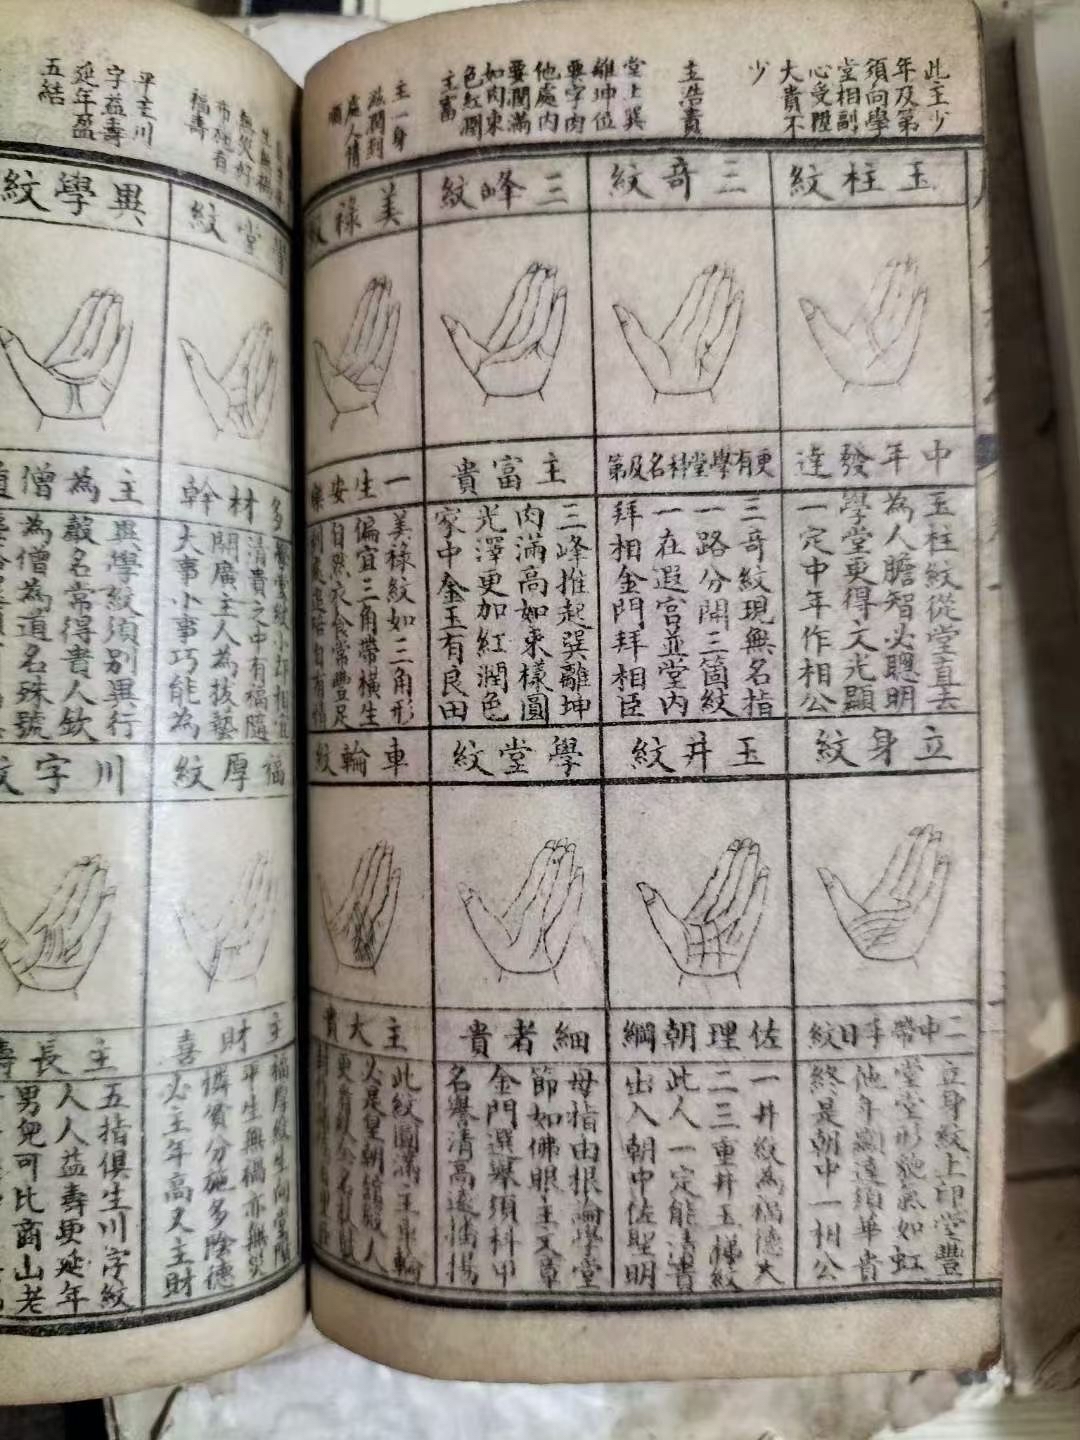 此主少
年及第
須向學
堂相副
心受陞
大貴不
少
主浩責
堂上巽
離坤位
要字肉
他處內
要潤滿
如肉來
色紅潤
主富
主一身
滋潤到
處人情
順
玉柱紋
中年發達
玉柱紋從堂直去
為人膽智必聰明
學堂更得文光顯
一定中年作相公
三奇紋
更有學堂科名及第
三奇紋現無名指
一路分開三箇紋
一在遐宮並堂內
拜相金門拜相臣
三峰紋
主富貴
三峰推起巽離坤
肉滿高如來樣圓
光澤更加紅潤色
家中金玉有良田
美祿紋
一生安樂
美祿紋如三角形
偏宜三角帶橫生
自然衣食常豐足
立身紋
二中帶年日紋
立身紋上印堂豐
堂堂形貌氣如虹
他年顯達須華貴
終是朝中一相公
玉井紋
佐理朝綱
一井紋為福德人
二三重井玉梯紋
此人一定能清貴
出入朝中佐聖明
學堂紋
細者貴
母指由根論學堂
節如佛眼主文章
金門選舉須科甲
名譽清高遠播揚
車輪紋
主大貴
此紋圓滿主車輪
必是皇朝館殿人
布施者
福壽
平主川
字益壽
延年盈
五結
學堂紋
多材幹
學堂紋小却相宜
清貴之中有福隨
開廣主人為技藝
大事小事巧能為
異學紋
主為僧道
異學紋須別異行
嚴名常得貴人欽
為僧為道名殊號
福厚紋
主財喜
福厚紋生向掌隂
平生無禍亦無災
憐貧分施多陰德
必主年高又主財
川字紋
主長壽
五指俱生川字紋
人人益壽更延年
男兒可比商山老